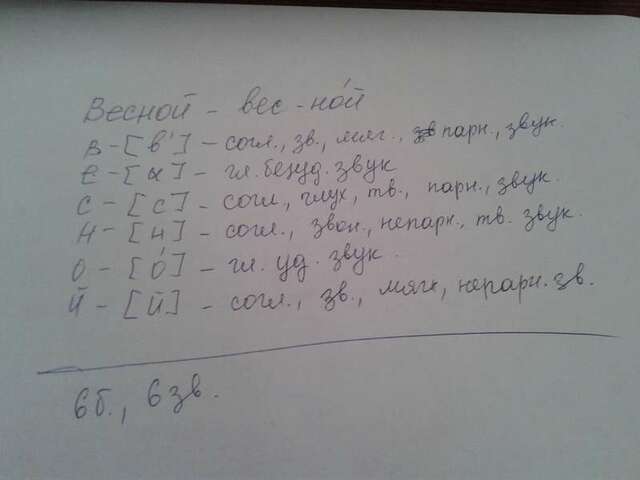 Весной – вес - но́й
в – [в'] – согл., зв., мяг., парн., звук.
е – [и] – гл. безуд. звук
с – [с] – согл, глух, тв., парн., звук.
н – [н] – согл., звон., непарн., тв. звук.
о – [о́] – гл. уд. звук.
й – [й] – согл., зв., мягк, непарн. зв.
6б., 6 зв.